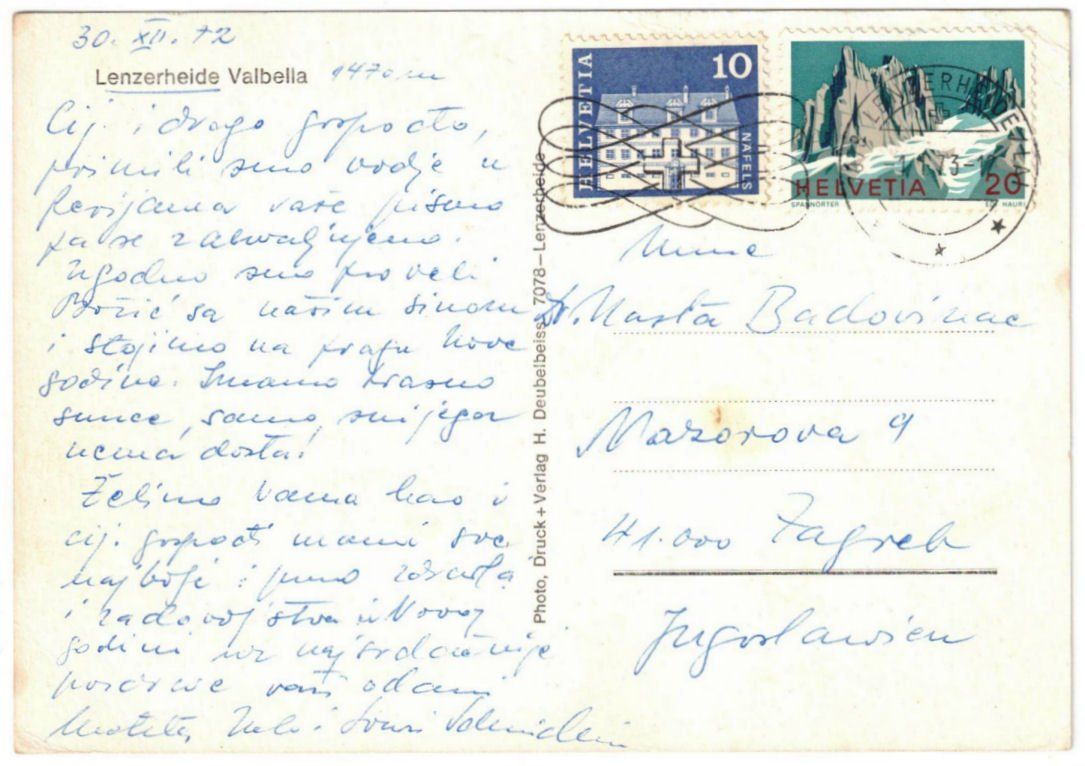 30. XII. 72
Lenzerheide Valbella 1470 m
Cij. i drago gospođo,
primili smo ovdje u
ferijama vaše pismo
pa se zahvaljujemo.
Ugodno smo proveli
Božić sa našim sinom
i stojimo na pragu Nove
godine. Imamo krasno
sunce, samo snijega
nema dosta!
Želimo Vama kao i
cij. gospođi mami sve
najbolje i puno zdravlja
i zadovoljstva u Novoj
godini uz najsrdačnije
pozdrave vaši odani
i
Photo, Druck+Verlag H. Deubelbeiss, 7078–Lenzerheide
HELVETIA
10
NÄFELS
HELVETIA 20
SPANNÖRTER HAURI
LENZERHEIDE
73
Dr. Badovinac
Mazorova 9
41.000 Zagreb
Jugoslawien